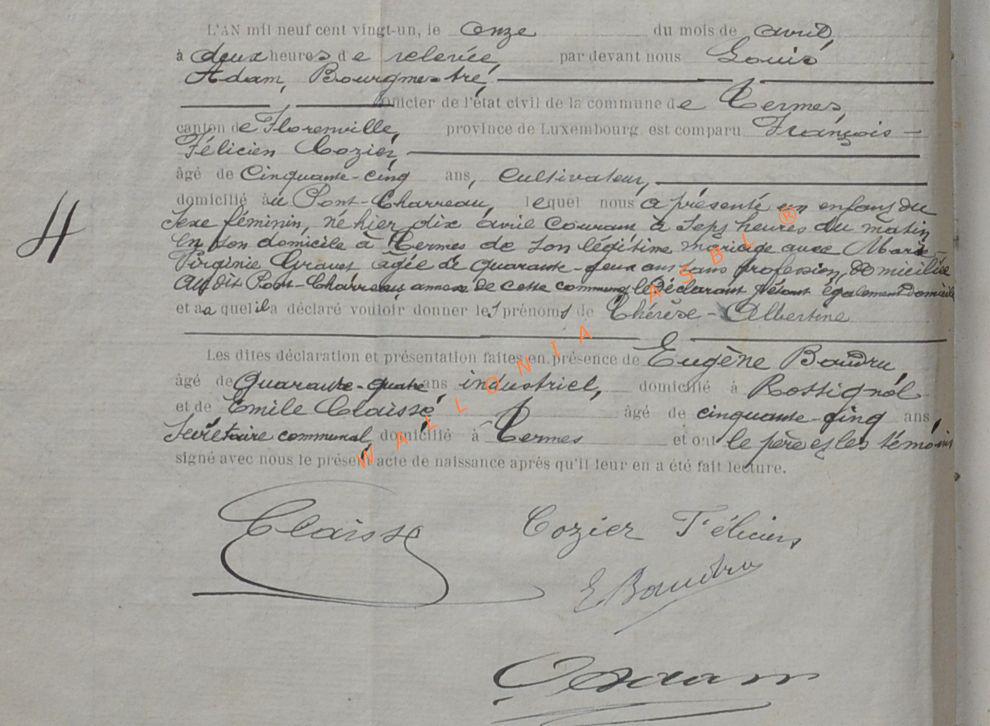 L'AN mil neuf cent vingt-un, le onze du mois de avril,
à deux heures de relevée, par devant nous Louis
Adam, Bourgmestre,
officier de l'état civil de la commune de Termes,
canton de Florenville, province de Luxembourg, est comparu François-
Félicien Cozier,
âgé de Cinquante-cinq ans, cultivateur,
domicilié au Pont-Charreau, lequel nous a présenté un enfant du
sexe féminin, né hier dix avril courant à sept heures du matin
En son domicile à Termes de son légitime mariage avec Marie-
Virginie agée de quarante-deux ans sans profession, domiciliée
Au dit Pont-Charreau annexe de cette commune le déclarant y étant également domicilié
4
et auquel il a déclaré vouloir donner les prénoms de Thérèse-Albertine
Les dites déclaration et présentation faites en présence de Eugène Baudru,
âgé de Quarante-quatre ans industriel, domicilié à Rossignol
et de Emile Claisse âgé de cinquante-cinq ans,
Secrétaire communal domicilié à Termes et ont le père et les témoins
signé avec nous le présent acte de naissance après qu'il leur en a été fait lecture.
WALLONIA ASBL ®
Claisse
Cozier Félicien
E Baudru
Adam